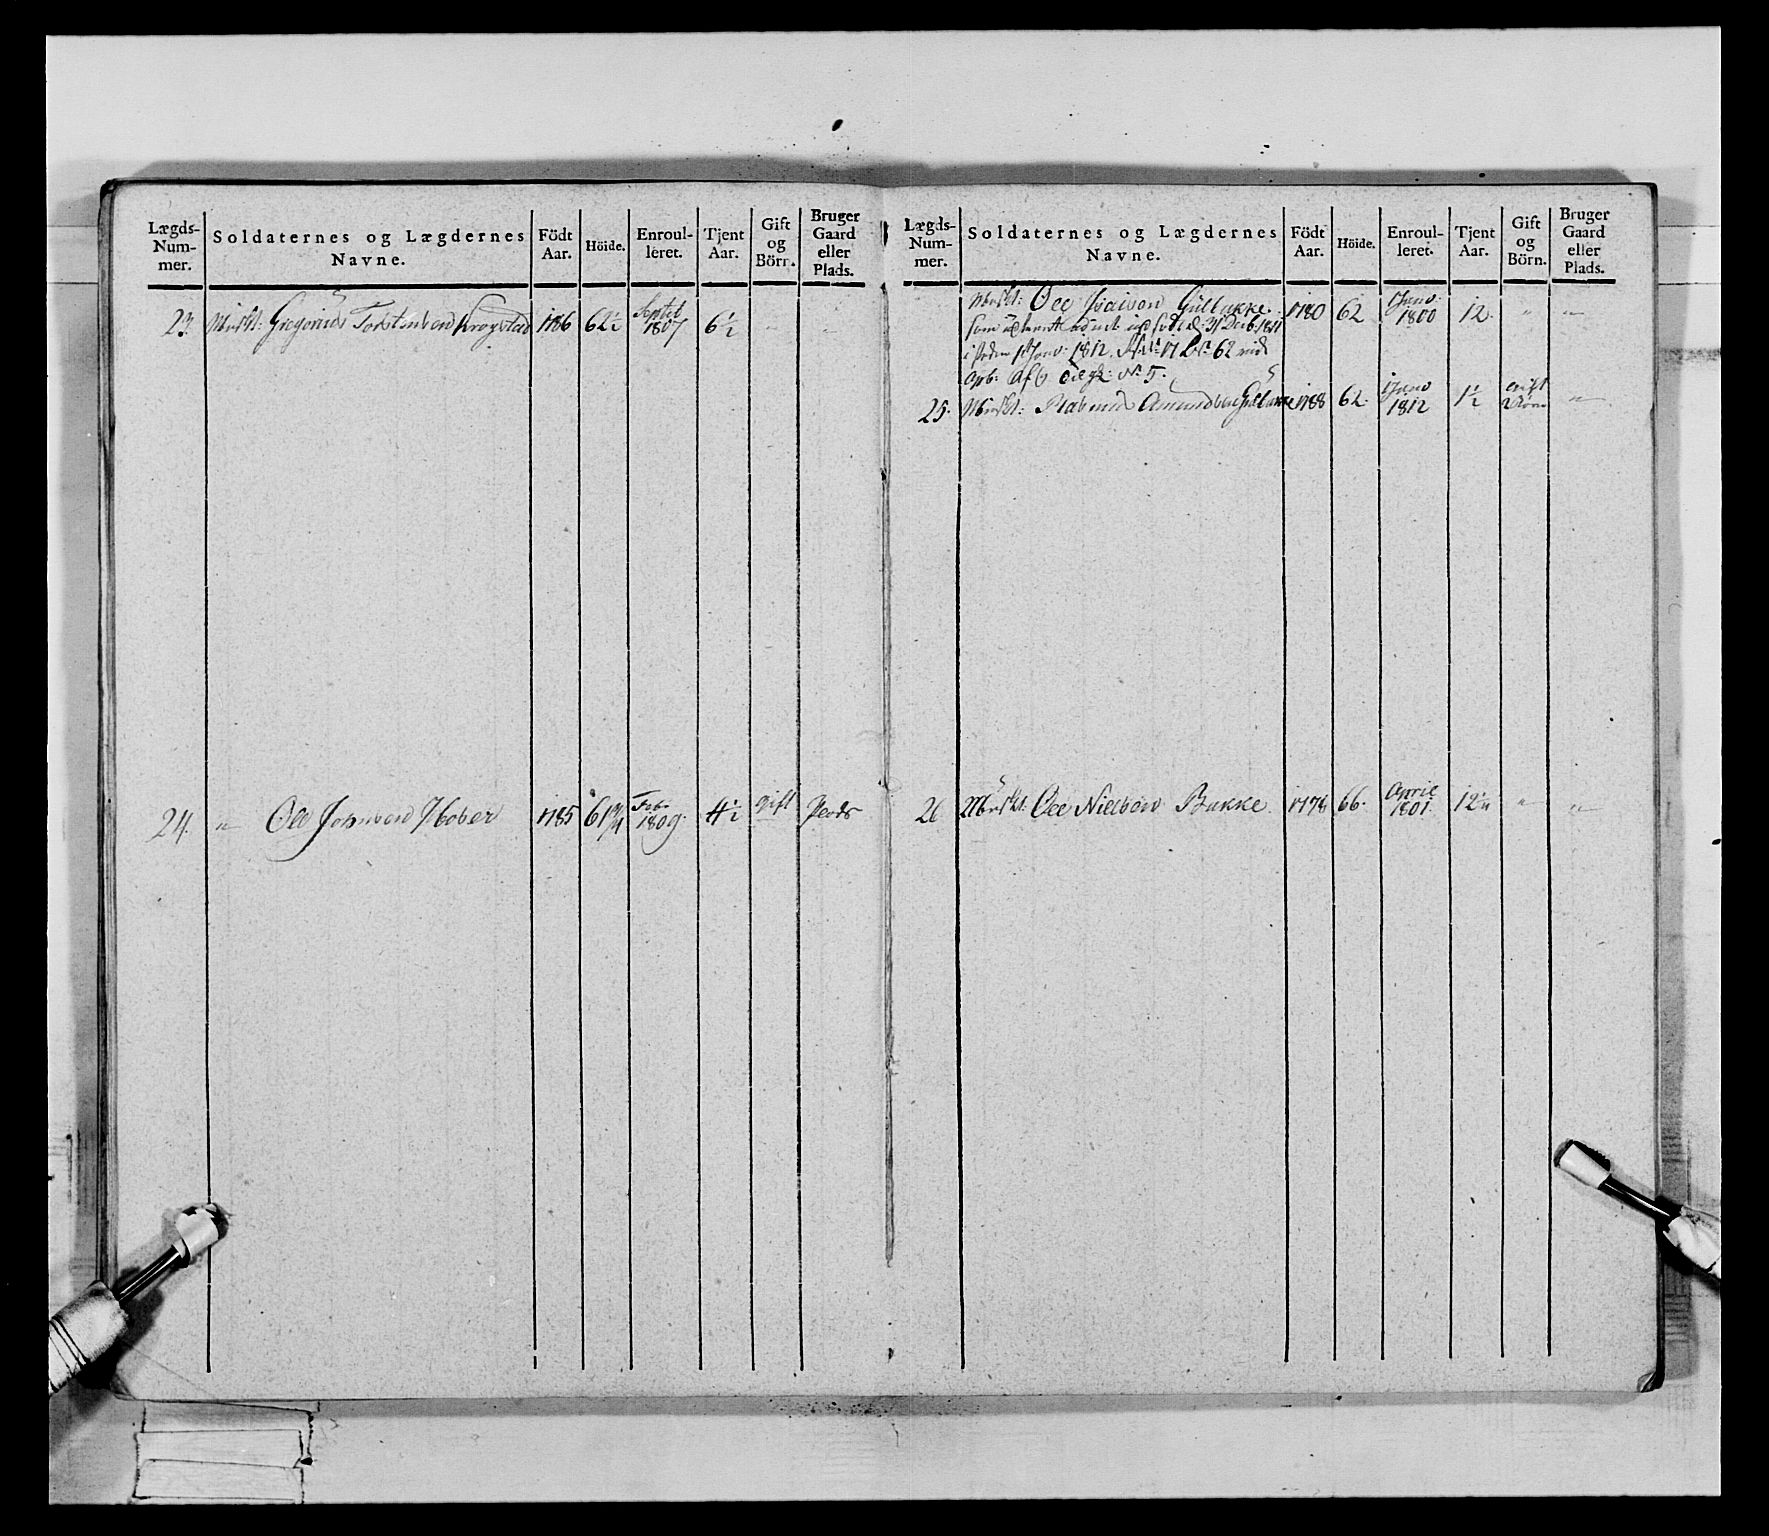 Lægds-Num-mer. Soldaternes og Lægdernes Navne. Födt Aar. Höide. Enroul-leret. Tjent Aar. Gift og Börn. Bruger Gaard eller Plads.
23. Muskt: Gregorius Torstensen Krogstad 1786 62½ Septbr 1807 6½ " "
24. " Ole Johnsen 1785 61¾ Feb. 1809. 4½ gift Plads
Lægds-Num-mer. Soldaternes og Lægdernes Navne. Födt Aar. Höide. Enroul-leret. Tjent Aar. Gift og Börn. Bruger Gaard eller Plads.
Muskt: Ole Gulbakke. 1780 62 1 Janv. 1800 12. " "
som udtient 31 Decb. 1811
1 Janv: 1812. 62
No. 5.
25. Muskt: Rasmus Amundsen Gulbakke 1788 62. 1 Janv 1812 1½ gift "
26 Muskt: Ole Nielsen Bakke. 1778 66. April 1801 12 " "